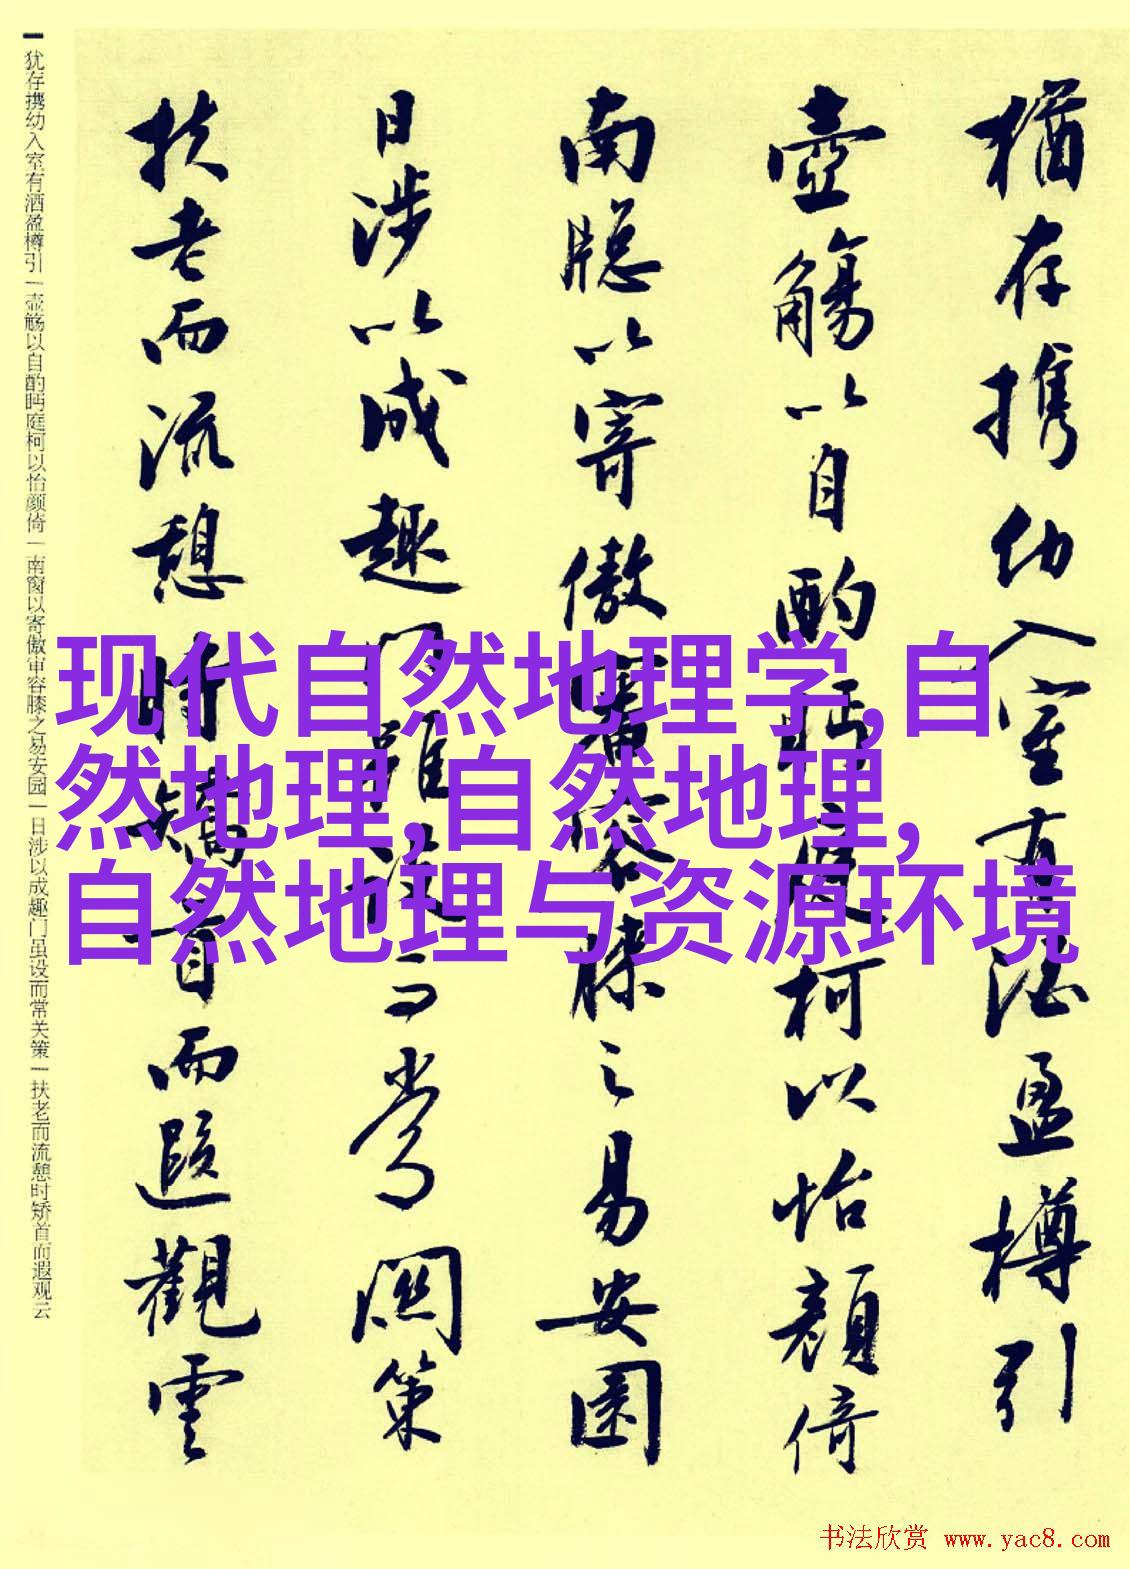 猶存携幼入室有酒盈樽引
壺觴以自酌眄庭柯以怡顔倚
南牕以寄傲審容膝之易安園
日涉以成趣門雖設而常関策
扶老而流憩時矯首而遐觀雲
犹存携幼入室有酒盈樽引|壶觞以自酌眄庭柯以怡颜倚|南窗以寄傲审容膝之易安园|日涉以成趣门虽设而常关策|扶老而流憩时矫首而遐观云
现代自然地理学,自
然地理,自然地理,
自然地理与资源环境
书法欣赏 www.yac8.com